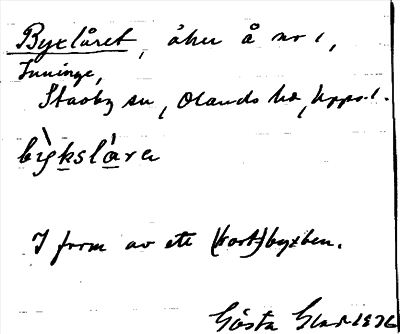 Byxlåret, åker å nr 1,
Inninge,
Stavby sn, Olands hd, Upps. l.
bykslåra
I form av ett (kort)byxben.
Gösta